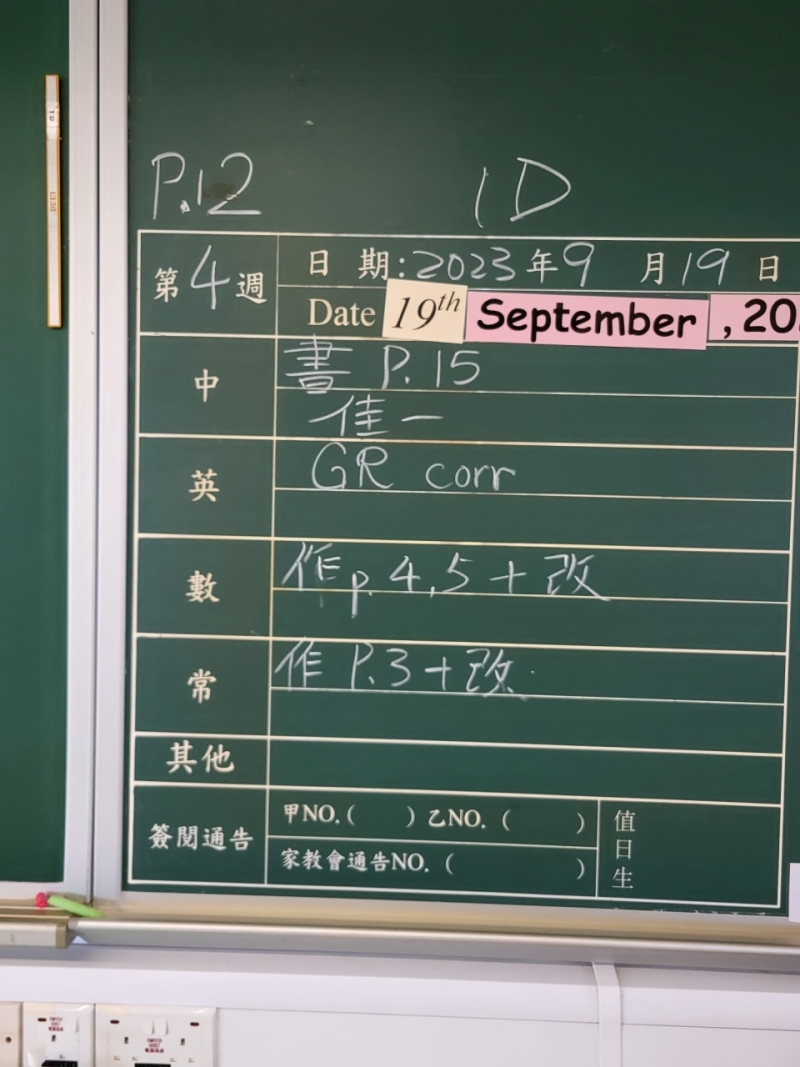 P.12 1D
第4週
日期:2023年9月19日
Date 19th September, 20
中
書 P.15
佳一
英
GR corr
數
作p.4,5+改
常
作 P.3+改
其他
簽閱通告
甲NO.( ) 乙NO.( )
家教會通告NO.( )
值日生